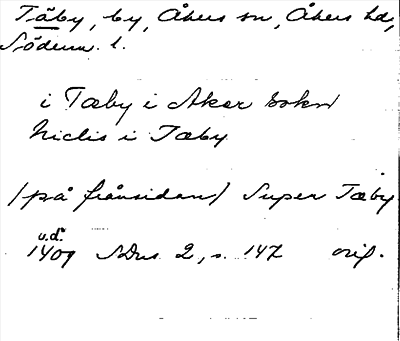 Täby, by, Åkers sn, Åkers hd,
Söderm. l.
i Tæby i Aker sokn
Niclis i Tæby
/på frånsidan/ Super Tæby
u.d.
1409 SDns 2, s. 147 orig.